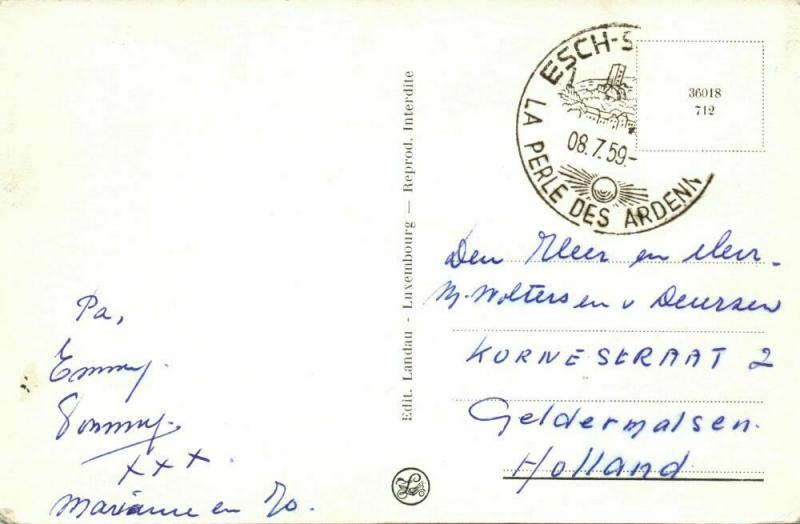 Pa,
Emmy.
Tommy.
xxx.
Marianne en Jo.
Edit. Landau - Luxembourg — Reprod. Interdite
ESCH-S
08.7.59.-
LA PERLE DES ARDENN
36018
712
Den Heer en Mevr.
M. Wolters en v Deursen
KORNESTRAAT 2
Geldermalsen.
Holland